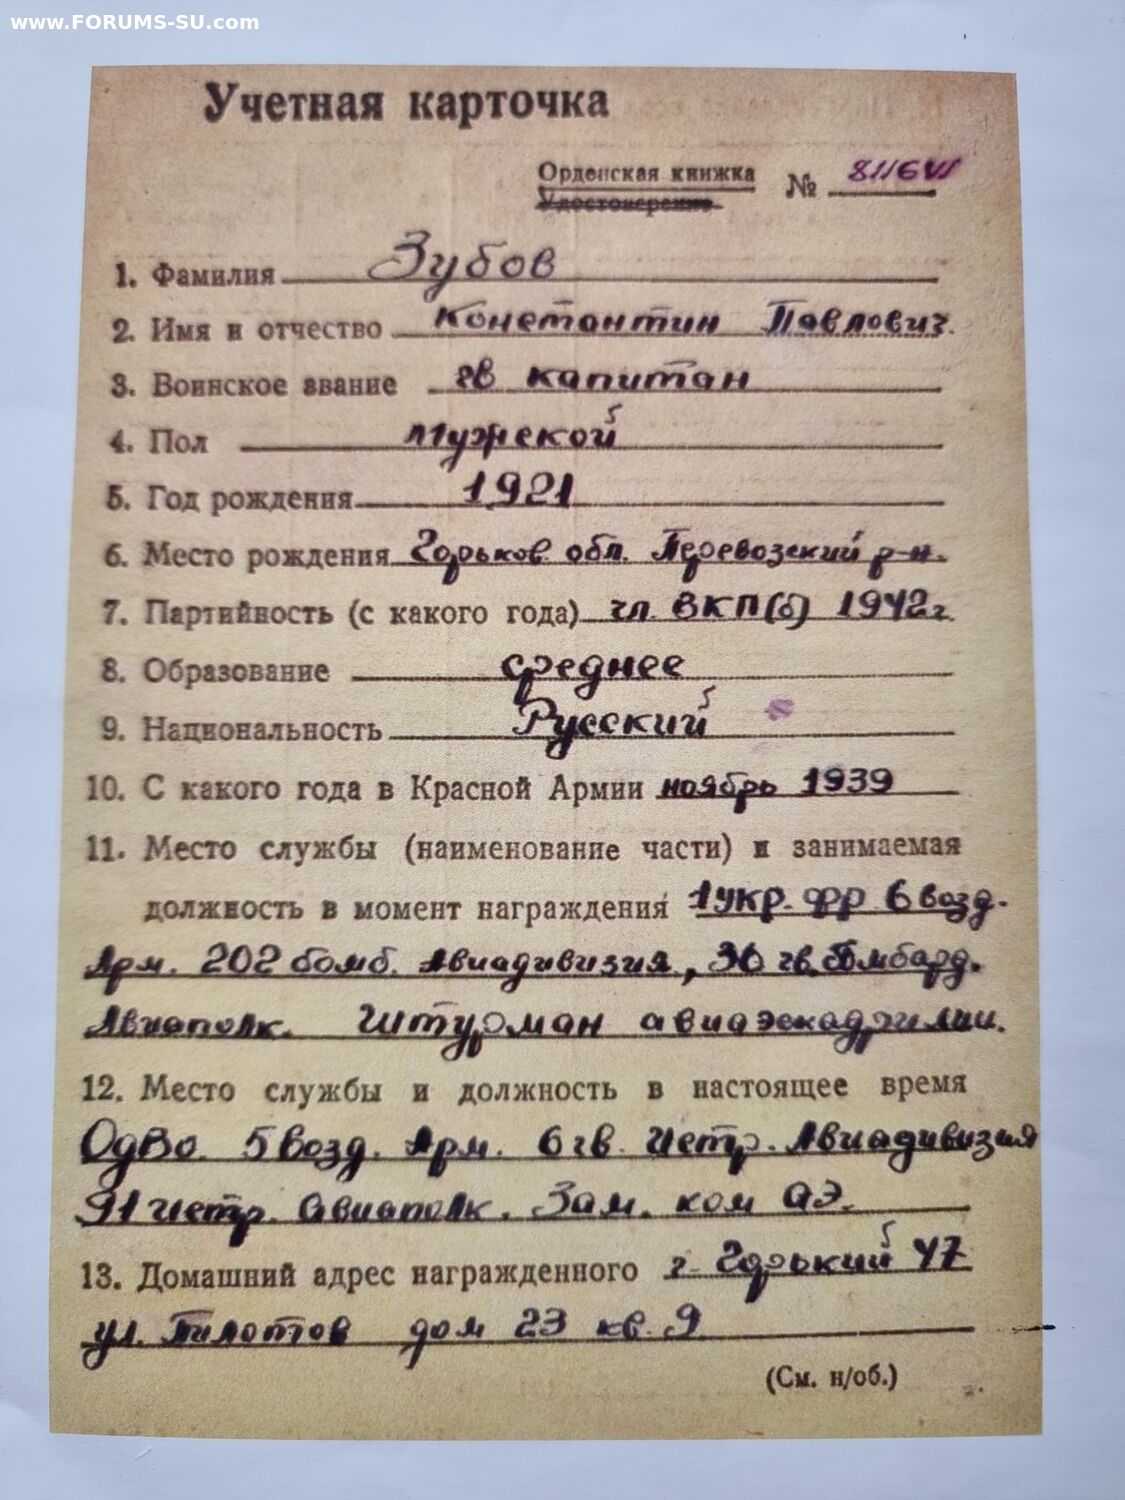 www.FORUMS-SU.com
Учетная карточка
Орденская книжка
Удостоверение
№
1. Фамилия Зубов
2. Имя и отчество Константин Павлович.
3. Воинское звание гв капитан
4. Пол Мужской
5. Год рождения 1921
6. Место рождения Горьков. обл. Перевозский р-н.
7. Партийность (с какого года) чл. ВКП(б) 1942г
8. Образование среднее
9. Национальность Русский
10. С какого года в Красной Армии ноябрь 1939
11. Место службы (наименование части) и занимаемая
должность в момент награждения 1 укр. фр 6 возд.
Арм. 202 бомб. Авиадивизия, 36 гв. Бомбард.
Авиаполк. Штурман авиаэскадрилии.
12. Место службы и должность в настоящее время
ОдВо. 5 возд. Арм. 6 гв. Истр. Авиадивизия
91 истр. Авиаполк. Зам. ком АЭ.
13. Домашний адрес награжденного г. Горький 47
ул. Пилотов дом 23 кв. 9
(См. н/об.)